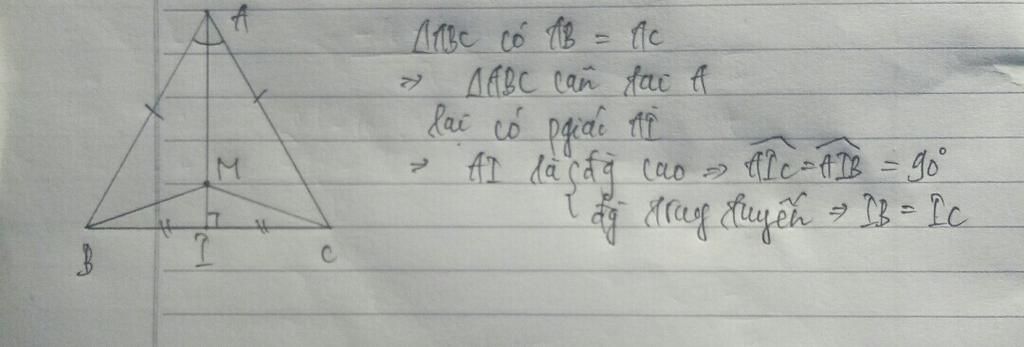 A
M
B
I
C
ΔABC có AB = AC
=> ΔABC cân tại A
lại có pgiác AI
=> AI là { đg cao => \widehat{AIC} = \widehat{AIB} = 90°
đg trung tuyến => IB = IC